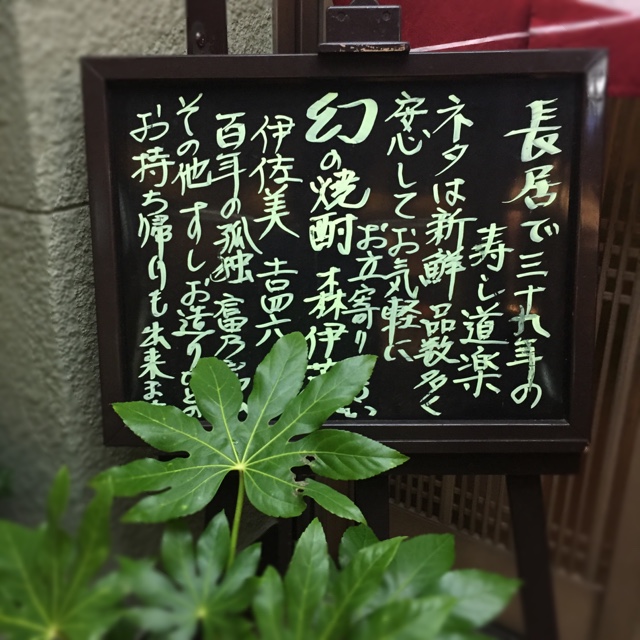 長居で三十九年の
寿し道楽
ネタは新鮮 品数多く
安心してお気軽に
お立寄り
幻の焼酎 森伊
伊佐美 吉四六
百年の孤独 富乃
その他 すしお造り
お持ち帰りも出来ま